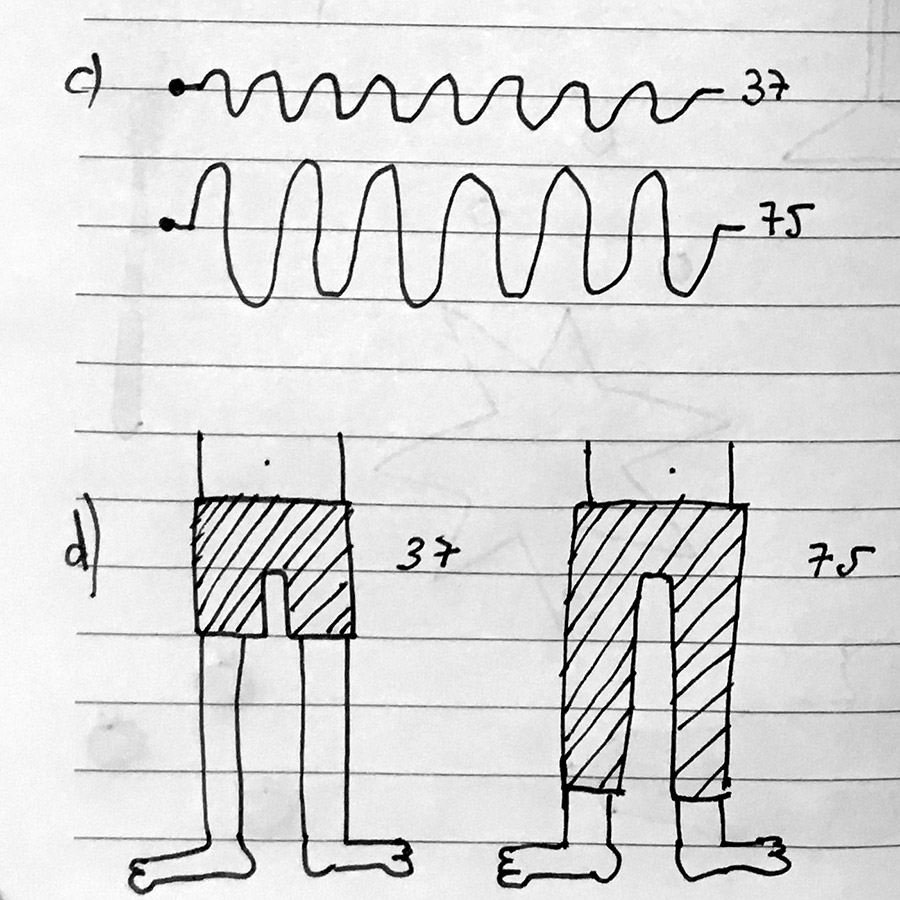 c) 37
75
d) 37 75